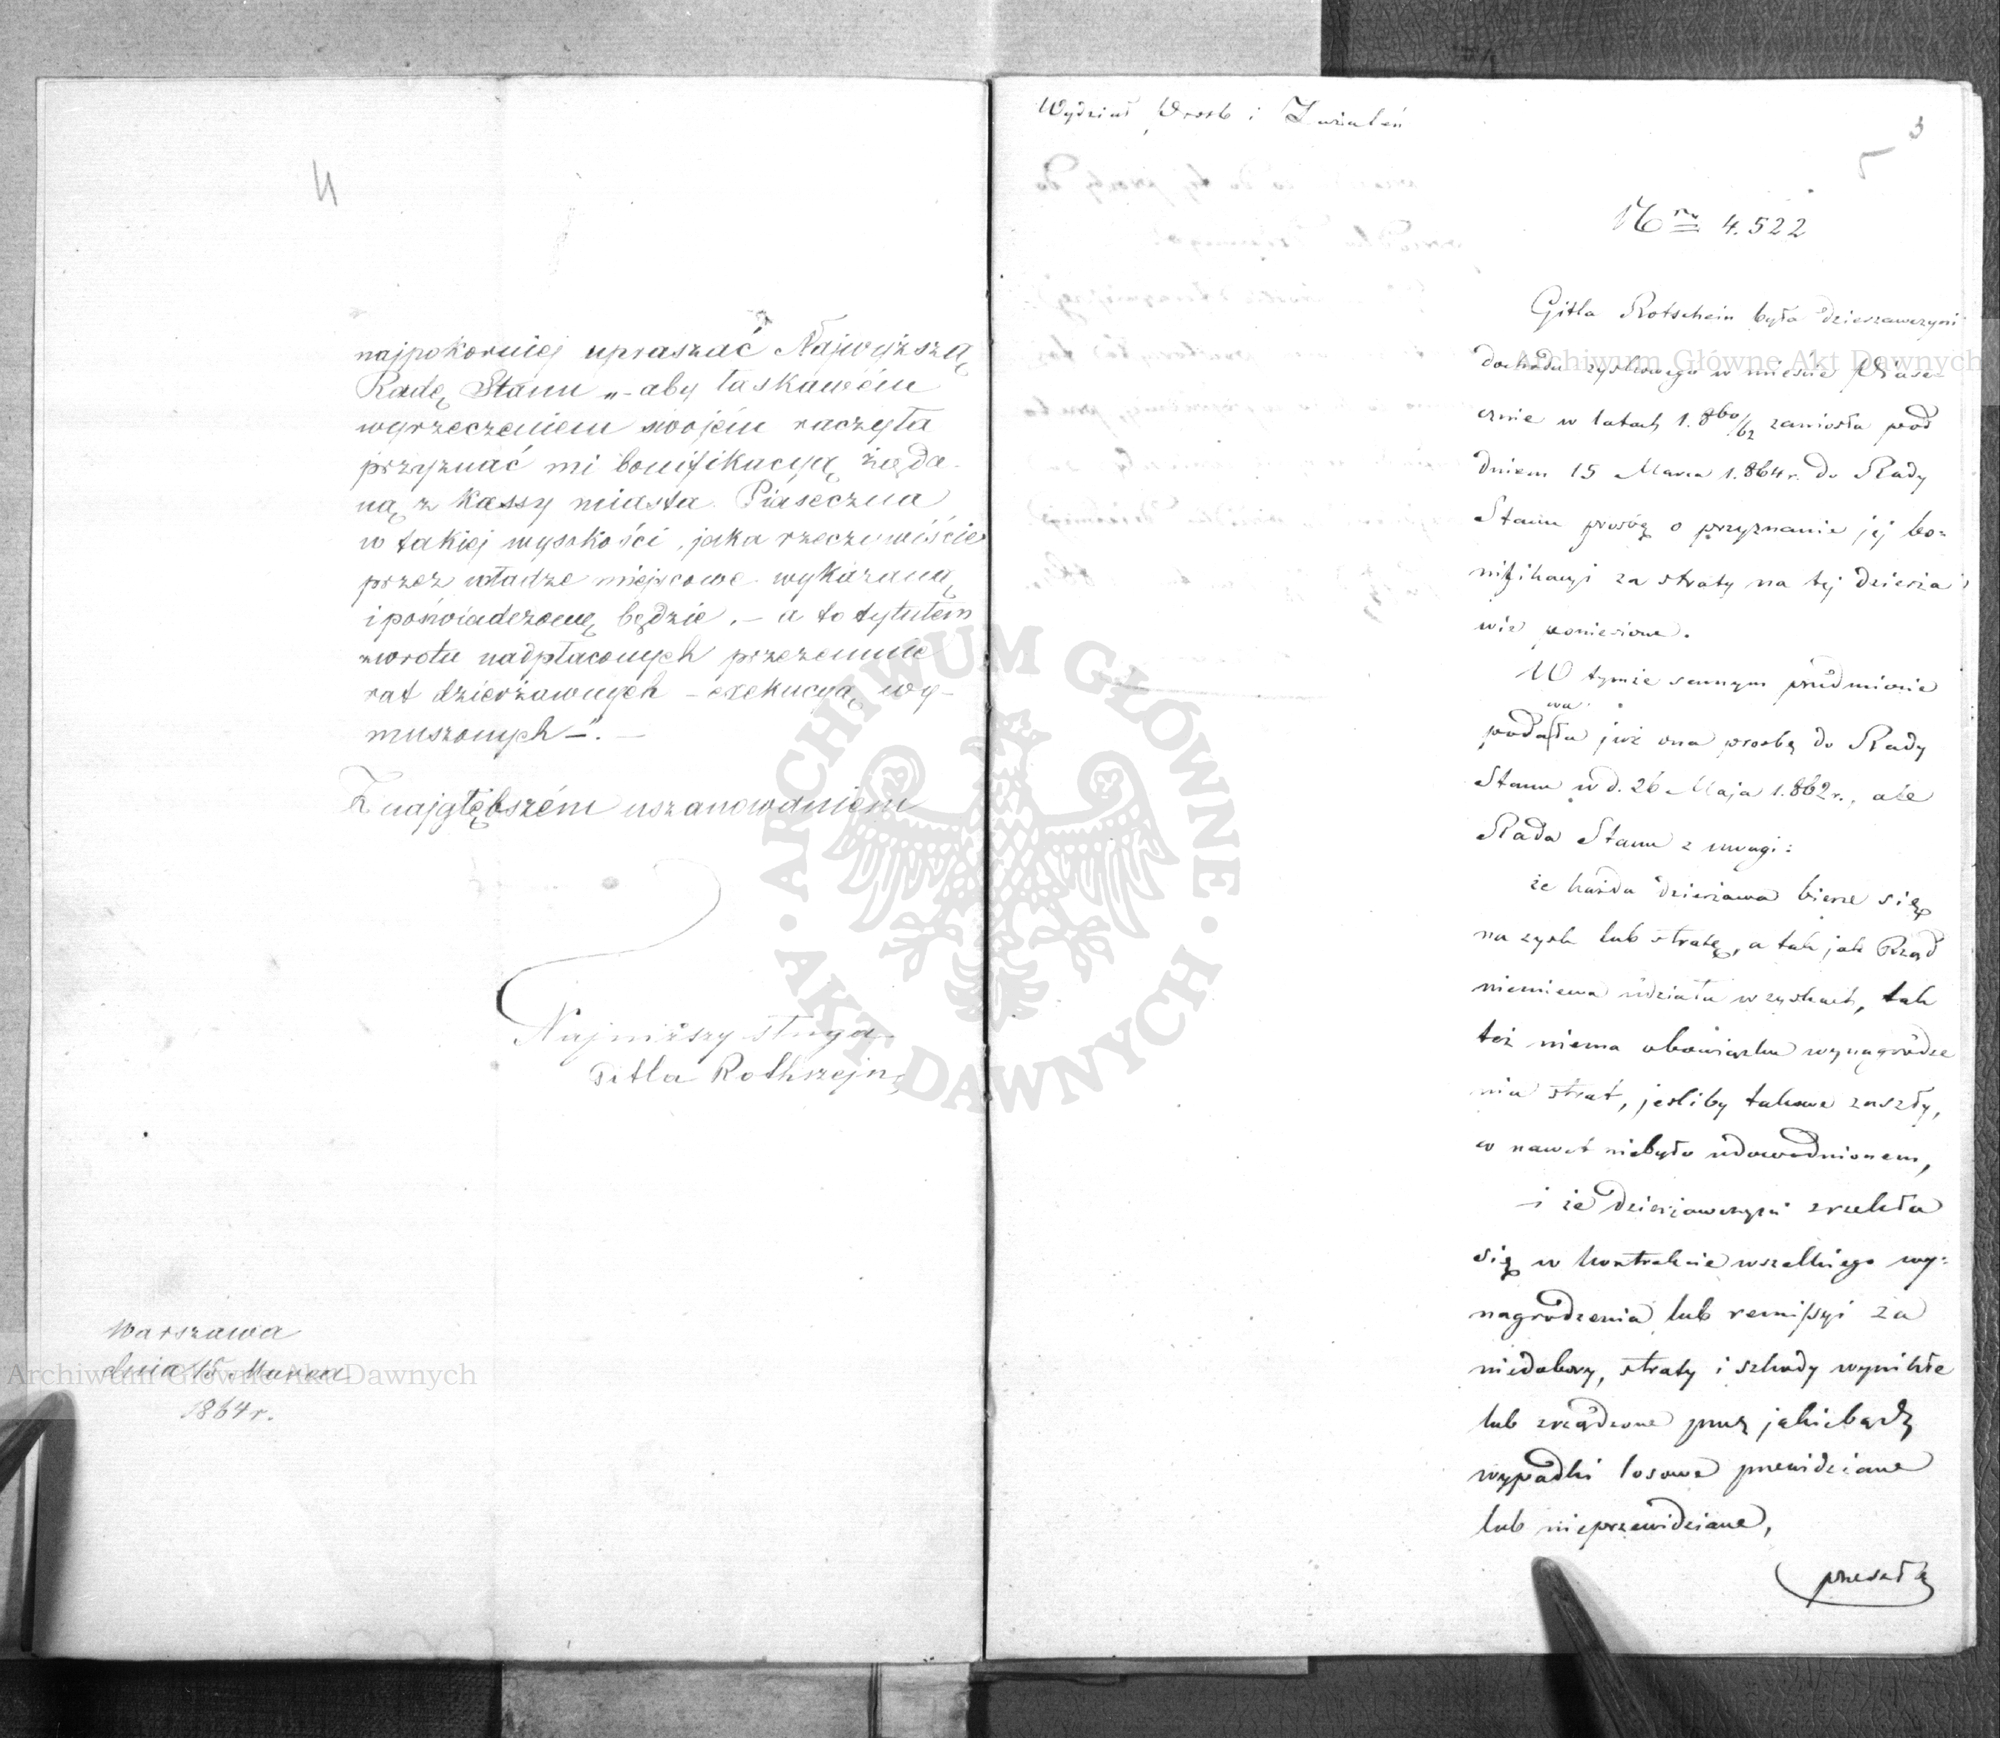 4
najpokorniej upraszać Najwyższą
Radę Stanu „- aby łaskawém
wyrzeczeniem swojém raczyła
przyznać mi bonifikacyą żąda-
ną z kassy miasta Piaseczna
w takiej wysokości, jaka rzeczywiście
przez władze miejscowe wykazaną
i poświadczoną będzie, - a to tytułem
zwrotu nadpłaconych przezemnie
rat dzierżawnych - exekucyą wy-
muszonych -". -
Z najgłębszém uszanowaniem
Najniższy sługa
Gitla Rothszejn
Warszawa
dnia 15 Marca
1864 r.
Wydział Prosb i Zażaleń
3
5
Nro 4.522
Gitla Rotschein była dzierzawczyni
dochodu zyskowego w mieście Piase-
cznie w latach 1.860/62 zaniosła pod
dniem 15 Marca 1.864 r. do Rady
Stanu prosbę o przyznanie jej bo=
nifikacyi za straty na tej dzierża
wie poniesione.
W tymże samym przedmiocie
podawała już ona prosbę do Rady
Stanu w d. 26 Maja 1.862 r., ale
Rada Stanu z uwagi:
że każda dzierżawa bierze się
na zysk lub stratę, a tak jak Rząd
niemiewa udziału w zyskach, tak
też niema obowiązku wynagrodze
nia strat, jeśliby takowe zaszły,
co nawet niebyło udowodnionem,
- i że dzierżawczyni zrzekła
się w kontrakcie wszelkiego wy=
nagrodzenia lub remissyi za
niedobory, straty i szkody wynikłe
lub zrządzone przez jakiebądź
wypadki losowe przewidziane
lub nieprzewidziane,
przesłał
ARCHIWUM GŁÓWNE · AKT DAWNYCH ·
Archiwum Główne Akt Dawnych
Archiwum Główne Akt Dawnych